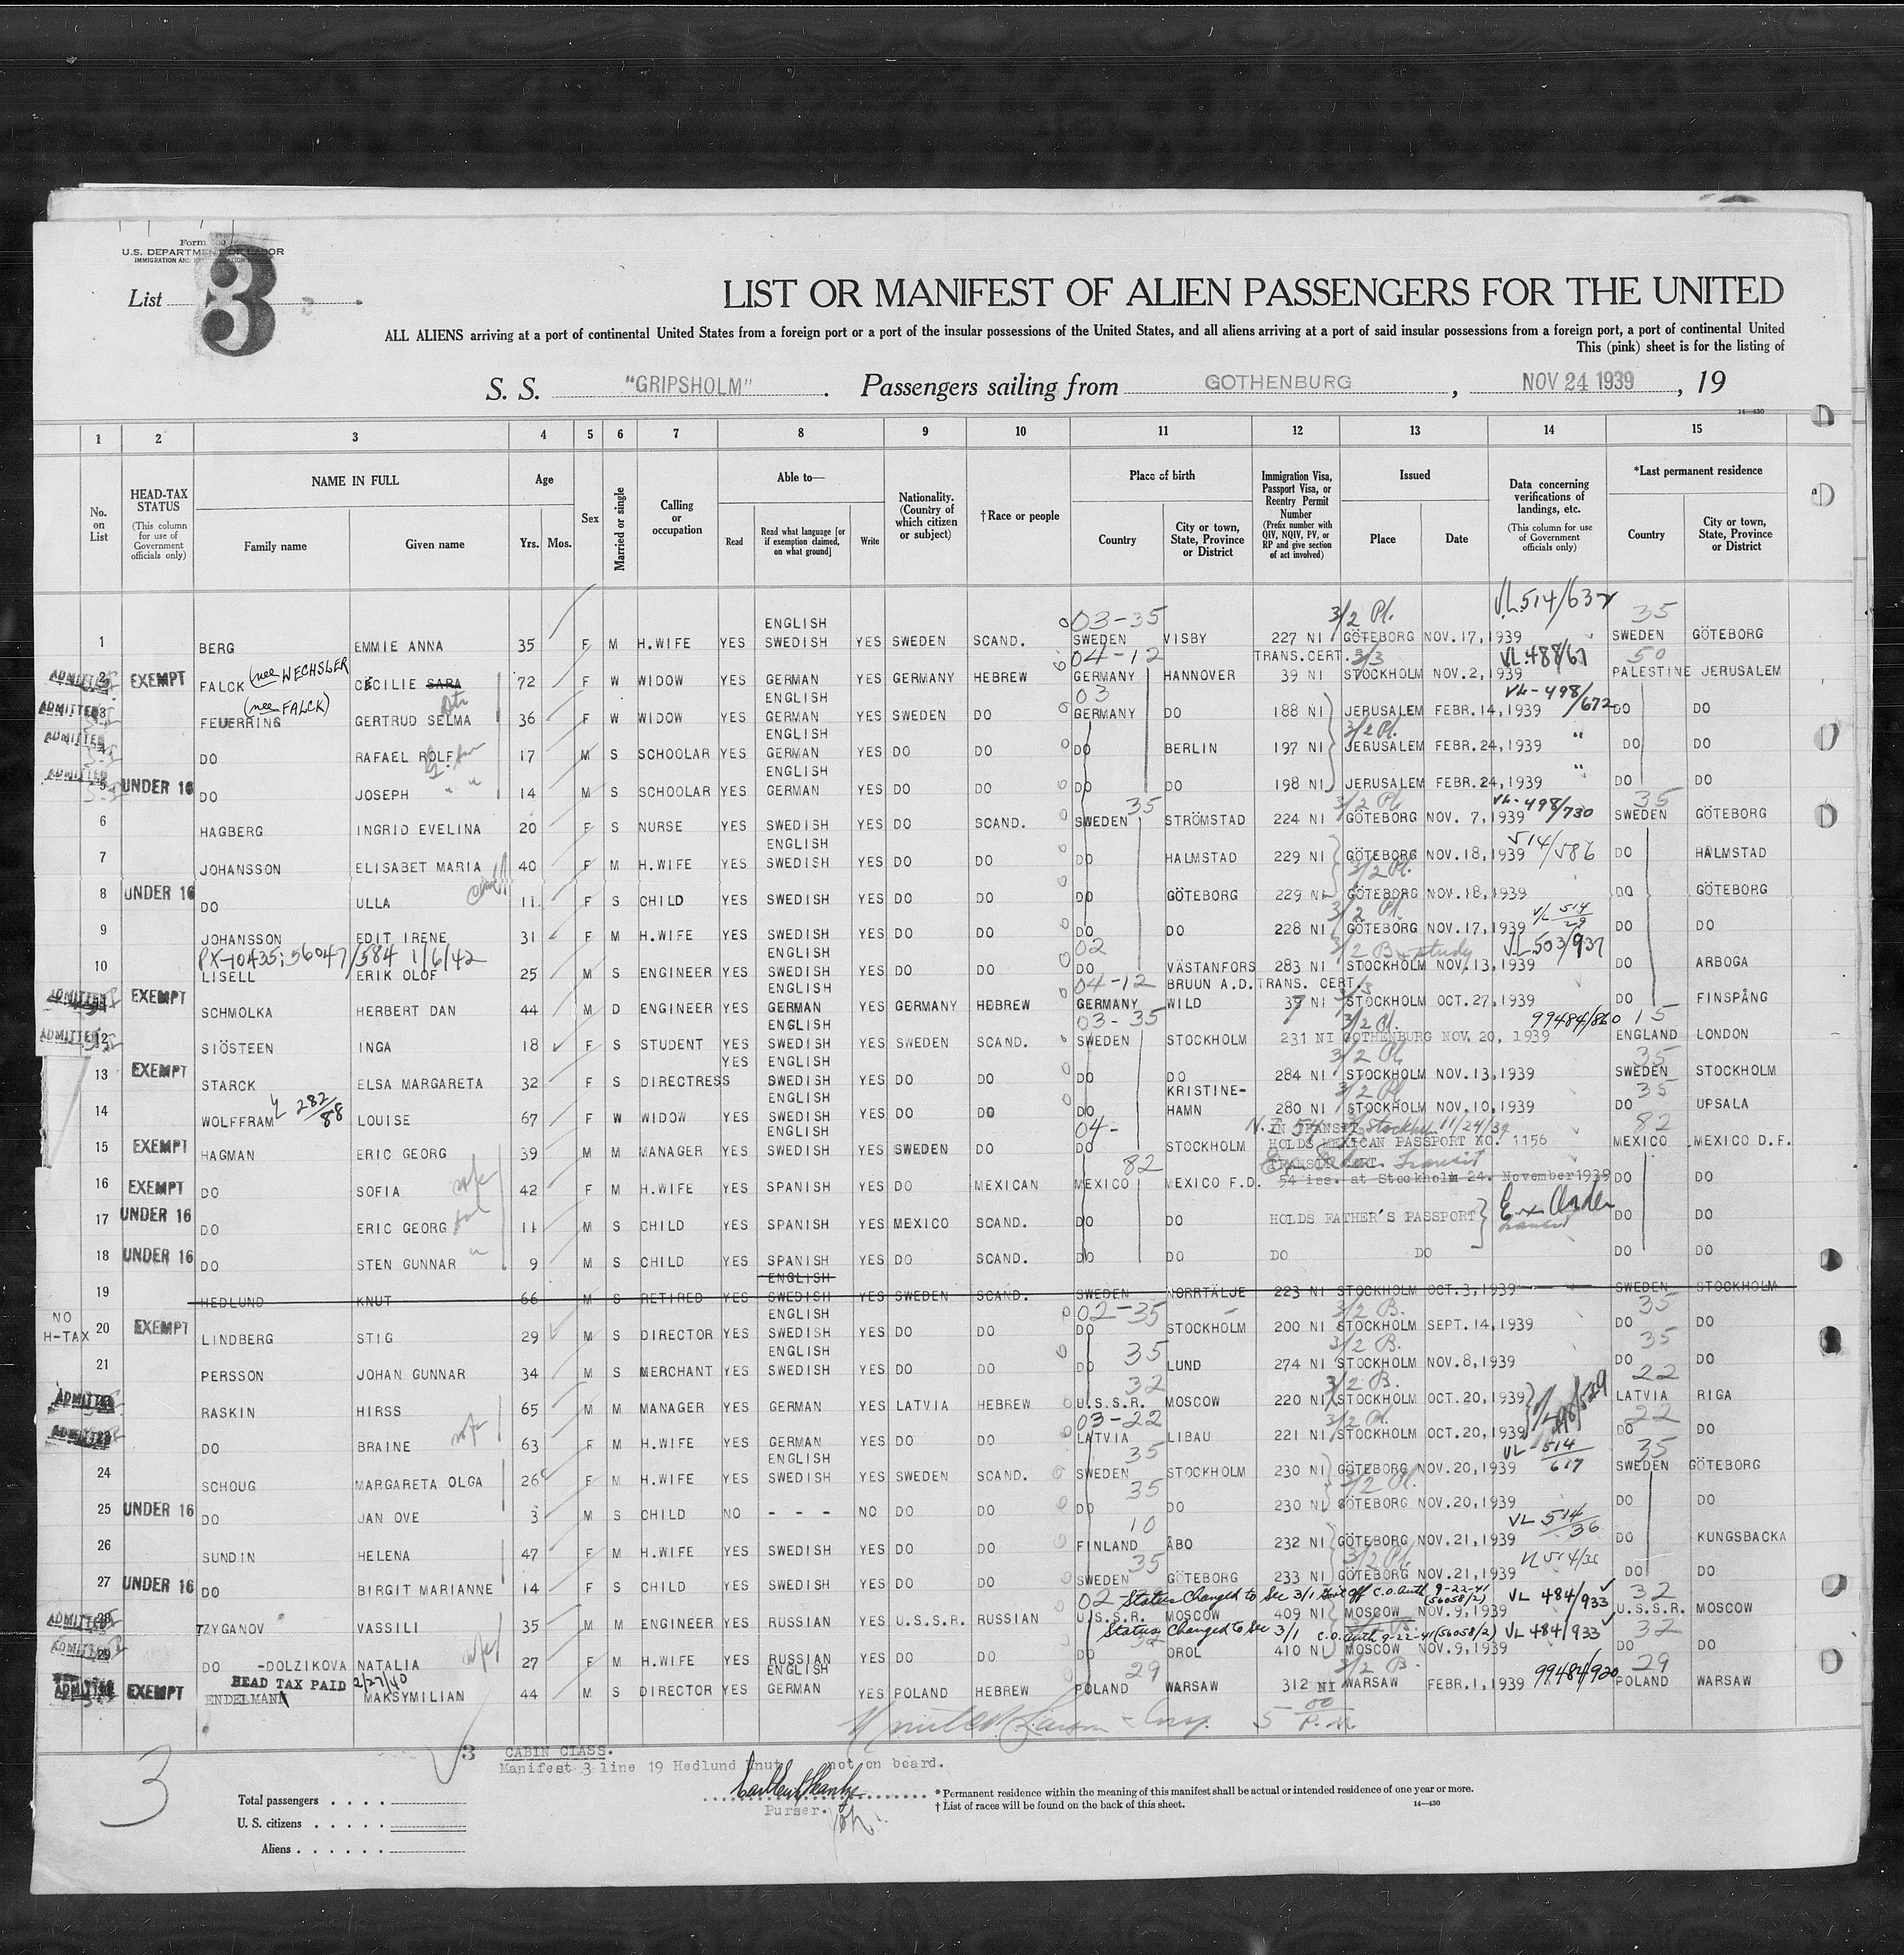 Form 630
U.S. DEPARTMENT OF LABOR
IMMIGRATION AND
List 3
LIST OR MANIFEST OF ALIEN PASSENGERS FOR THE UNITED
ALL ALIENS arriving at a port of continental United States from a foreign port or a port of the insular possessions of the United States, and all aliens arriving at a port of said insular possessions from a foreign port, a port of continental United
This (pink) sheet is for the listing of
S. S. "GRIPSHOLM". Passengers sailing from GOTHENBURG, NOV 24 1939, 19
14—430
1 2 3 4 5 6 7 8 9 10 11 12 13 14 15
No. on List
HEAD-TAX STATUS (This column for use of Government officials only)
NAME IN FULL Family name Given name
Age Yrs. Mos.
Sex
Married or single
Calling or occupation
Able to— Read Read what language [or if exemption claimed, on what ground] Write
Nationality. (Country of which citizen or subject)
†Race or people
Place of birth Country City or town, State, Province or District
Immigration Visa, Passport Visa, or Reentry Permit Number (Prefix number with QIV, NQIV, PV, or RP and give section of act involved)
Issued Place Date
Data concerning verifications of landings, etc. (This column for use of Government officials only)
*Last permanent residence Country City or town, State, Province or District
ENGLISH 03-35 3/2 Pl. VL514/632 35
1 BERG EMMIE ANNA 35 F M H.WIFE YES SWEDISH YES SWEDEN SCAND. SWEDEN VISBY 227 NI GÖTEBORG NOV.17,1939 SWEDEN GÖTEBORG
04-12 TRANS.CERT. 3/3 VL 488/67 50
ADMITTED 2 EXEMPT FALCK (nee WECHSLER CECILIE SARA 72 F W WIDOW YES GERMAN YES GERMANY HEBREW GERMANY HANNOVER 39 NI STOCKHOLM NOV.2,1939 PALESTINE JERUSALEM
(nee FALCK) ENGLISH 03 VL-498/672
ADMITTED 3 FEUERRING GERTRUD SELMA 36 F W WIDOW YES GERMAN YES SWEDEN DO GERMANY DO 188 NI JERUSALEM FEBR.14,1939 DO DO
ENGLISH 3/2 Pl. "
ADMITTED 4 DO RAFAEL ROLF 17 M S SCHOOLAR YES GERMAN YES DO DO DO BERLIN 197 NI JERUSALEM FEBR.24,1939 DO DO
ENGLISH "
ADMITTED 5 UNDER 16 DO JOSEPH " " 14 M S SCHOOLAR YES GERMAN YES DO DO DO DO 198 NI JERUSALEM FEBR.24,1939 DO DO
35 3/2 Pl. VL-498/730 35
6 HAGBERG INGRID EVELINA 20 F S NURSE YES SWEDISH YES DO SCAND. SWEDEN STRÖMSTAD 224 NI GÖTEBORG NOV. 7,1939 SWEDEN GÖTEBORG
ENGLISH 514/586
7 JOHANSSON ELISABET MARIA 40 F M H.WIFE YES SWEDISH YES DO DO DO HALMSTAD 229 NI GÖTEBORG NOV.18,1939 DO HALMSTAD
3/2 Pl.
8 UNDER 16 DO ULLA child 11 F S CHILD YES SWEDISH YES DO DO DO GÖTEBORG 229 NI GÖTEBORG NOV.18,1939 DO GÖTEBORG
3/2 Pl. VL 514/29
9 JOHANSSON EDIT IRENE 31 F M H.WIFE YES SWEDISH YES DO DO DO DO 228 NI GÖTEBORG NOV.17,1939 DO DO
PX-10435; 56047/584 1/6/42 ENGLISH 02 3/2 B study VL503/937
10 LISELL ERIK OLOF 25 M S ENGINEER YES SWEDISH YES DO DO DO VÄSTANFORS 283 NI STOCKHOLM NOV.13,1939 DO ARBOGA
ENGLISH 04-12 BRUUN A.D. TRANS. CERT. 3/3
ADMITTED 11 EXEMPT SCHMOLKA HERBERT DAN 44 M D ENGINEER YES GERMAN YES GERMANY HEBREW GERMANY WILD 37 NI STOCKHOLM OCT.27,1939 DO FINSPÅNG
ENGLISH 03-35 3/2 Pl. 99484/860 15
ADMITTED 12 SIÖSTEEN INGA 18 F S STUDENT YES SWEDISH YES SWEDEN SCAND. SWEDEN STOCKHOLM 231 NI GOTHENBURG NOV. 20, 1939 ENGLAND LONDON
YES ENGLISH 3/2 Pl. 35
13 EXEMPT STARCK ELSA MARGARETA 32 F S DIRECTRESS SWEDISH YES DO DO DO DO 284 NI STOCKHOLM NOV.13,1939 SWEDEN STOCKHOLM
ENGLISH KRISTINE- 3/2 Pl 35
14 WOLFFRAM 282/88 LOUISE 67 F W WIDOW YES SWEDISH YES DO DO DO HAMN 280 NI STOCKHOLM NOV.10,1939 DO UPSALA
ENGLISH 04- IN TRANSIT Stockholm 11/24/39 82
15 EXEMPT HAGMAN ERIC GEORG 39 M M MANAGER YES SWEDISH YES SWEDEN DO DO STOCKHOLM HOLDS MEXICAN PASSPORT NO. 1156 MEXICO MEXICO D.F.
82 Transit
16 EXEMPT DO SOFIA wife 42 F M H.WIFE YES SPANISH YES DO MEXICAN MEXICO MEXICO F.D. 54 iss. at Stockholm 24. November 1939 DO DO
17 UNDER 16 DO ERIC GEORG son 11 M S CHILD YES SPANISH YES MEXICO SCAND. DO DO HOLDS FATHER'S PASSPORT DO DO
18 UNDER 16 DO STEN GUNNAR " 9 M S CHILD YES SPANISH YES DO SCAND. DO DO DO DO DO DO
ENGLISH
19 HEDLUND KNUT 66 M S RETIRED YES SWEDISH YES SWEDEN SCAND. SWEDEN NORRTÄLJE 223 NI STOCKHOLM OCT.3,1939 SWEDEN STOCKHOLM
ENGLISH 02-35 3/2 B. 35
NO H-TAX 20 EXEMPT LINDBERG STIG 29 M S DIRECTOR YES SWEDISH YES DO DO DO STOCKHOLM 200 NI STOCKHOLM SEPT.14,1939 DO DO
ENGLISH 35 3/2 B. 35
21 PERSSON JOHAN GUNNAR 34 M S MERCHANT YES SWEDISH YES DO DO DO LUND 274 NI STOCKHOLM NOV.8,1939 DO DO
32 3/2 B. 22
ADMITTED 22 RASKIN HIRSS 65 M M MANAGER YES GERMAN YES LATVIA HEBREW U.S.S.R. MOSCOW 220 NI STOCKHOLM OCT.20,1939 LATVIA RIGA
03-22 3/2 Pl. 498/529 22
ADMITTED 23 DO BRAINE wife 63 F M H.WIFE YES GERMAN YES DO DO LATVIA LIBAU 221 NI STOCKHOLM OCT.20,1939 DO DO
ENGLISH 35 VL-514/617 35
24 SCHOUG MARGARETA OLGA 26 F M H.WIFE YES SWEDISH YES SWEDEN SCAND. SWEDEN STOCKHOLM 230 NI GÖTEBORG NOV.20,1939 SWEDEN GÖTEBORG
35 3/2 Pl.
25 UNDER 16 DO JAN OVE 3 M S CHILD NO - - - NO DO DO DO DO 230 NI GÖTEBORG NOV.20,1939 DO DO
10 VL 514/36
26 SUNDIN HELENA 47 F M H.WIFE YES SWEDISH YES DO DO FINLAND ÅBO 232 NI GÖTEBORG NOV.21,1939 DO KUNGSBACKA
35 3/2 Pl. VL514/36
27 UNDER 16 DO BIRGIT MARIANNE 14 F S CHILD YES SWEDISH YES DO DO SWEDEN GÖTEBORG 233 NI GÖTEBORG NOV.21,1939 DO DO
02 Status Changed to Sec 3/1 Gov't Off C.O. auth 9-22-41 (56058/2) VL 484/933 32
ADMITTED 28 TZYGANOV VASSILI 35 M M ENGINEER YES RUSSIAN YES U.S.S.R. RUSSIAN U.S.S.R. MOSCOW 409 NI MOSCOW NOV.9,1939 U.S.S.R. MOSCOW
Status Changed to Sec 3/1 C.O. auth 9-22-41 (56058/2) VL 484/933 32
ADMITTED 29 DO -DOLZIKOVA NATALIA wife 27 F M H.WIFE YES RUSSIAN YES DO DO DO OROL 410 NI MOSCOW NOV.9,1939 DO DO
HEAD TAX PAID 2/27/40 ENGLISH 29 3/2 B. 99484/920 29
ADMITTED 30 EXEMPT ENDELMAN MAKSYMILIAN 44 M S DIRECTOR YES GERMAN YES POLAND HEBREW POLAND WARSAW 312 NI WARSAW FEBR.1,1939 POLAND WARSAW
5 00 P.M.
3
3 CABIN CLASS.
Manifest 3 line 19 Hedlund Knut not on board.
Purser.
Total passengers
U. S. citizens
Aliens
* Permanent residence within the meaning of this manifest shall be actual or intended residence of one year or more.
† List of races will be found on the back of this sheet.
14—430